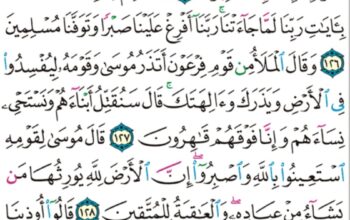 بِـَٔايَٰتِ رَبِّنَا لَمَّا جَآءَتۡنَاۚ رَبَّنَآ أَفۡرِغۡ عَلَيۡنَا صَبۡرٗا وَتَوَفَّنَا مُسۡلِمِينَ
١٢٦ وَقَالَ ٱلۡمَلَأُ مِن قَوۡمِ فِرۡعَوۡنَ أَتَذَرُ مُوسَىٰ وَقَوۡمَهُۥ لِيُفۡسِدُواْ
فِي ٱلۡأَرۡضِ وَيَذَرَكَ وَءَالِهَتَكَۚ قَالَ سَنُقَتِّلُ أَبۡنَآءَهُمۡ وَنَسۡتَحۡيِۦ
نِسَآءَهُمۡ وَإِنَّا فَوۡقَهُمۡ قَٰهِرُونَ ١٢٧ قَالَ مُوسَىٰ لِقَوۡمِهِ
ٱسۡتَعِينُواْ بِٱللَّهِ وَٱصۡبِرُوٓاْۖ إِنَّ ٱلۡأَرۡضَ لِلَّهِ يُورِثُهَا مَن
يَشَآءُ مِنۡ عِبَادِهِۦۖ وَٱلۡعَٰقِبَةُ لِلۡمُتَّقِينَ ١٢٨ قَالُوٓاْ أُوذِينَا